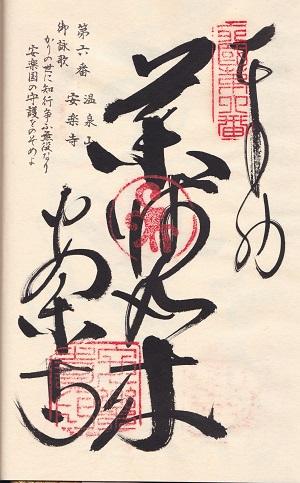 奉納
薬師如来
安楽寺
四國第六番
第六番
温泉山
安楽寺
御詠歌
かりの世に知行争ふ無役なり
安楽国の守護をのぞめよ